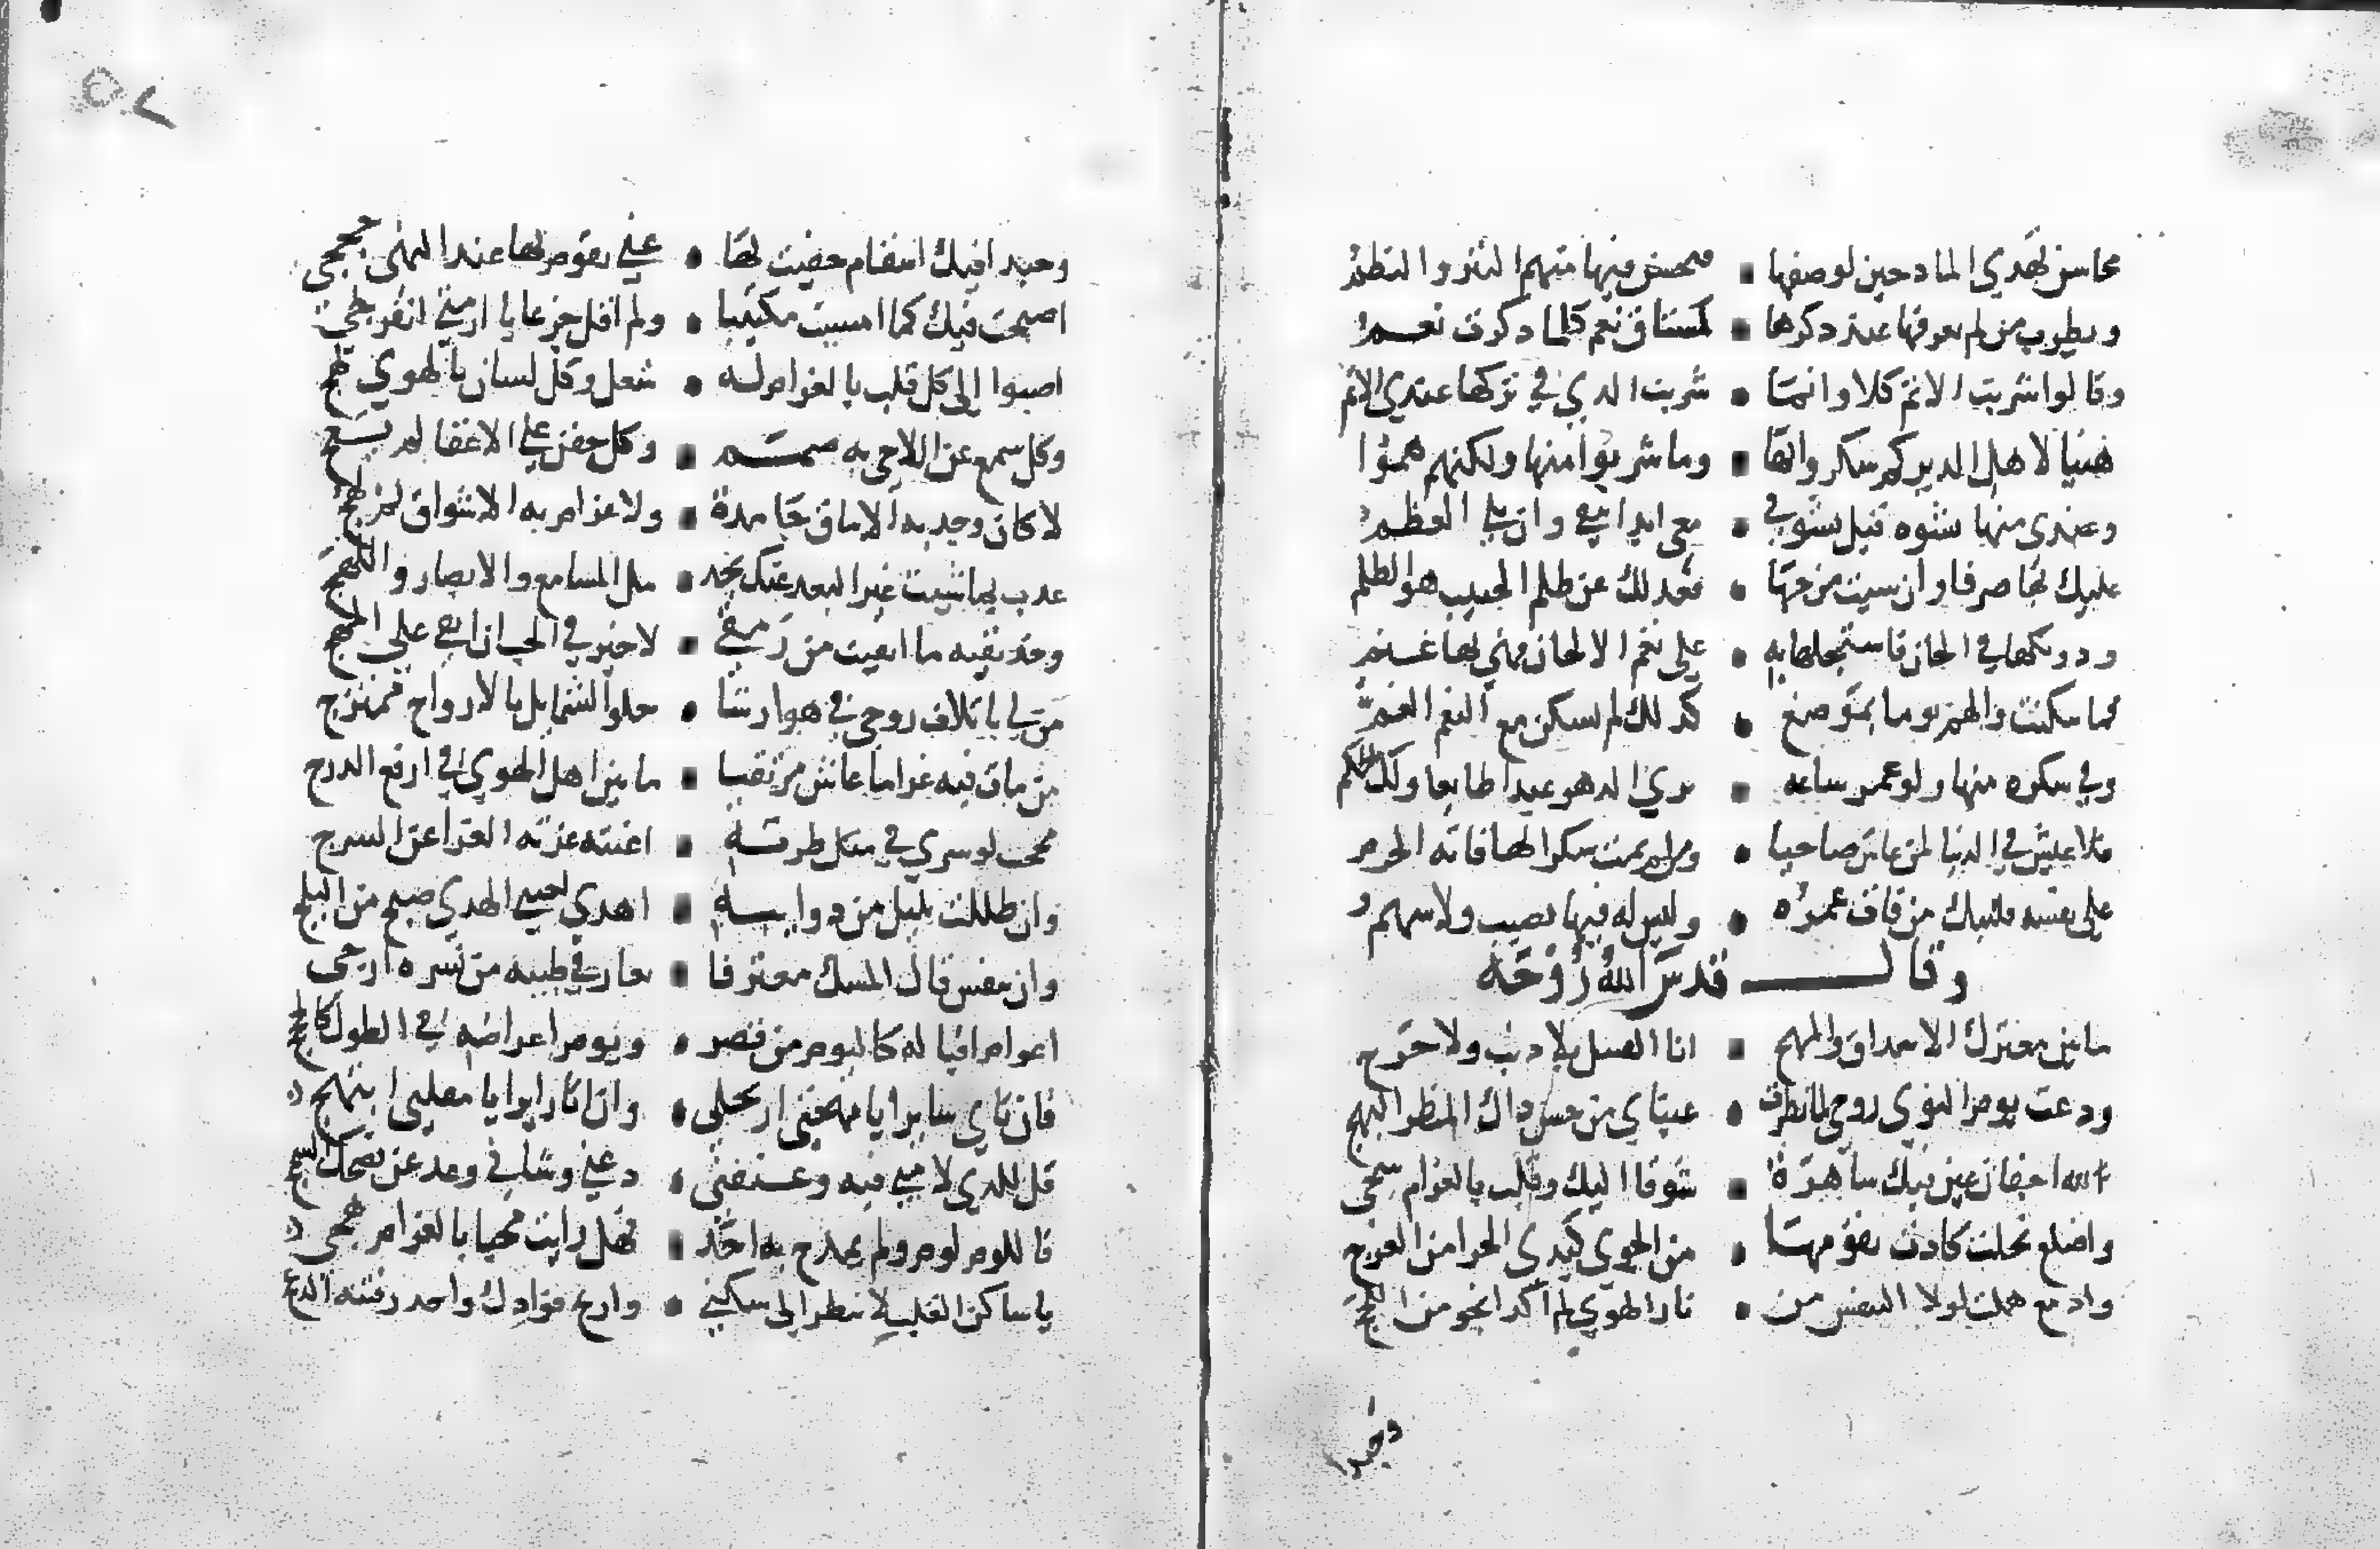 محاسن تهدي المادحين لوصفها ▪ فيحسن فيها منهم النثر والنظم
ويطرب من لم يعرفها عند ذكرها ▪ كمشتاق نعم كلما ذكرت نعم
وقالوا شربت الاثم كلا وانما • شربت الذي في تركها عندي الاثم
هنيا لاهل الدير كم سكروا بها ▪ وما شربوا منها ولكنهم هموا
وعندي منها نشوه قبل نشوتي ▪ معي ابدا تبقي وان بلي العظم
عليك بها صرفا وان شيت مزجها • فعدلك عن ظلم الحبيب هو الظلم
ودونكها في الحان فاستجلها به • على نغم الالحان فهي بها غنم
فما سكنت والهم يوما بموضع • كذلك لم يسكن مع النغم الغم
وفي سكره منها ولو عمر ساعه ▪ تري الدهر عبدا طايعا ولك الحكم
فلا عيش في الدنيا لمن عاش صاحيا • ومن لم يمت سكرا بها فاته الحزم
على نفسه فليبك من ضاع عمره • وليس له فيها نصيب ولا سهم
وقال قدس الله روحه
ما بين معترك الاحداق والمهج ▪ انا القتيل بلا ذنب ولا حرج
ودعت يوم الهوى روحي لما نظرت • عيناي من حسن ذاك المنظر البهج
لله اجفان عين فيك ساهرة ▪ شوقا اليك وقلب بالغرام شجي
واضلع نحلت كادت تقومها • من الجوي كبدي الحرا من العوج
وادمع هملت لولا التنفس من • نار الهوي لم اكد انجو من اللجج
وحبذا فيك اسقام خفيت بها • عني تقوم بها عند الهوى حججي
اصبحت فيك كما امسيت مكتيبا • ولم اقل جزعا يا ازمتي انفرجي
اصبوا الى كل قلب بالغرام له • شغل وكل لسان بالهوي لهج
وكل سمع عن اللاحي به صمم ▪ وكل جفن على الاغفا لم يعج
لا كان وجد به الاماق جامدة ▪ ولا غرام به الاشواق لم تهج
عذب بما شيت غير البعد عنك تجد ▪ مل المسامع والابصار والمهج
وخذ بقيه ما ابقيت من رمقي ▪ لا خير في الحب ان ابقى على المهج
من لي باتلاف روحي في هوا رشا • حلو الشمايل بالارواح ممتزج
من مات فيه غراما عاش مرتقيا ▪ ما بين اهل الهوي في ارفع الدرج
محجب لو سري في مثل طرته ▪ اغنته غرته الغرا عن السرج
وان ظللت بليل من ذوايبه ▪ اهدى لعيني الهدي صبح من البلج
وان تنفس قال المسك معترفا ▪ لعارفي طيبه من نشره ارجي
اعوام اقباله كاليوم من قصر • ويوم اعراضه في الطول كالحجج
فان ناي سايرا يا مهجتي ارتحلي • وان دنا زايرا يا مقلتي ابتهجي
قل للذي لامني فيه وعنفني • دعني وشاني وعد عن نصحك السمج
فاللوم لوم ولم يمدح به احد ▪ فهل رايت محبا بالغرام هجي
يا ساكن القلب لا تنظر الى سكني • واربح فوادك واحذر فتنه الدعج